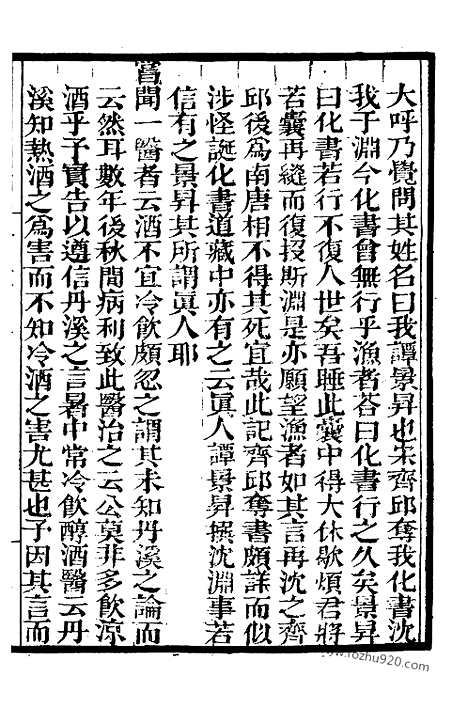 大呼乃覺問其姓名曰我譚景昇也宋齊邱奪我化書沈
我于淵今化書曾無行乎漁者荅曰化書行之久矣景昇
曰化書若行不復人世矣吾睡此囊中得大休歇煩君將
若囊再縫而復投斯淵是亦願望漁者如其言再沈之齊
邱後爲南唐相不得其死宜哉此記齊邱奪書頗詳而似
涉怪誕化書道藏中亦有之云眞人譚景昇撰沈淵事若
信有之景昇其所謂眞人耶
嘗聞一醫者云酒不宜冷飲頗忽之謂其未知丹溪之論而
云然耳數年後秋間病利致此醫治之云公莫非多飲涼
酒乎予實告以遵信丹溪之言暑中常冷飲醇酒醫云丹
溪知熱酒之爲害而不知冷酒之害尤甚也予因其言而
www.1ozhu920.com